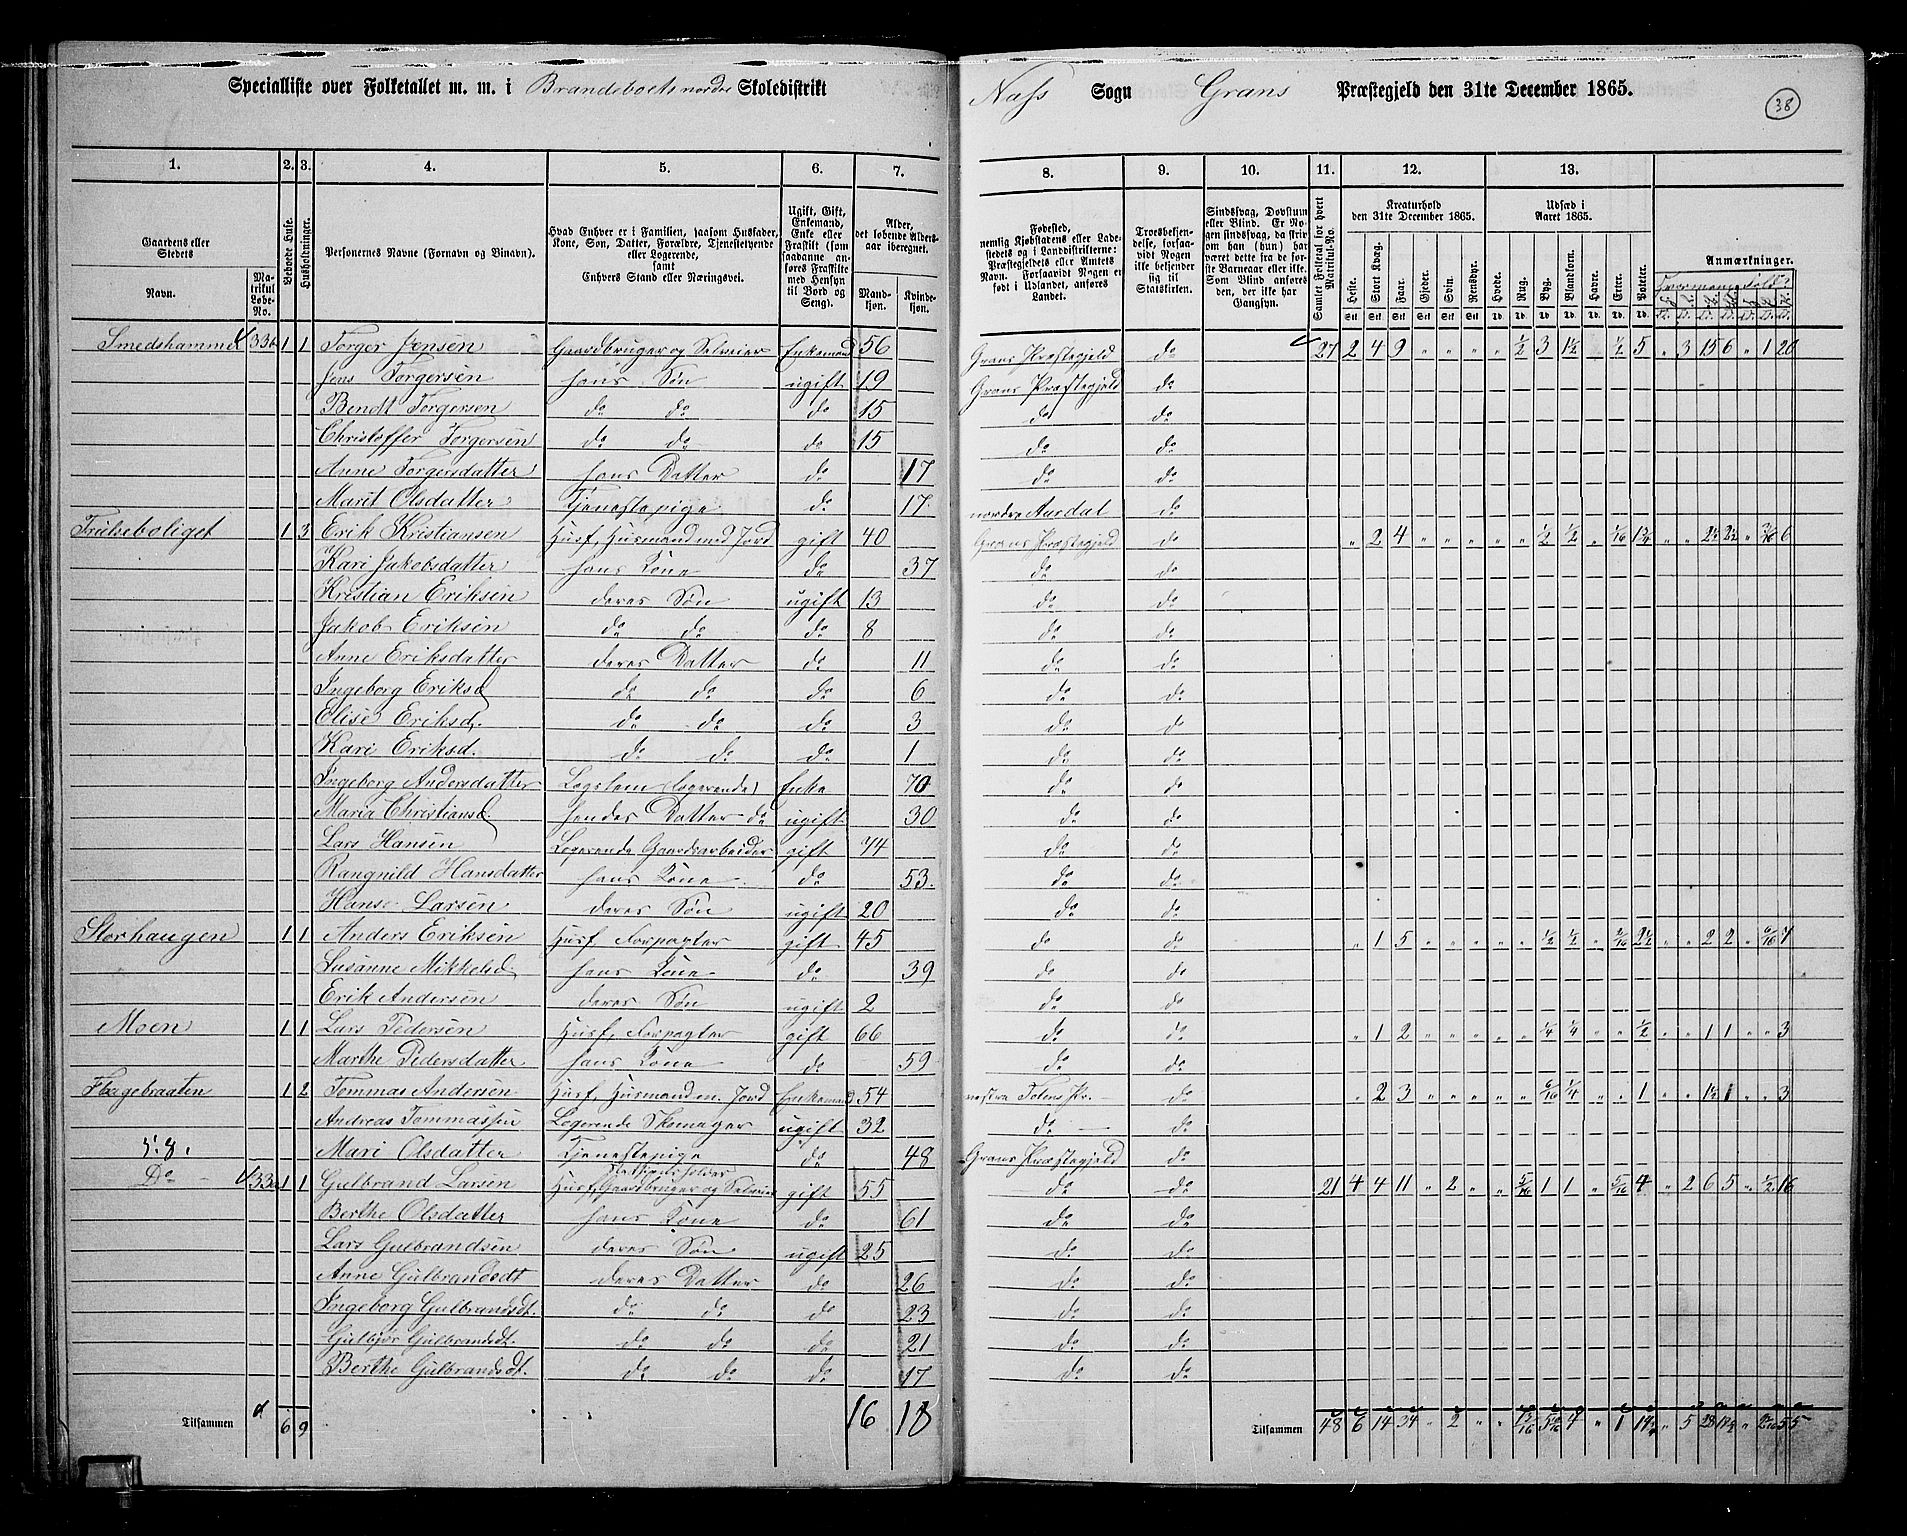 Specialliste over Folketallet m. m. i Brandeboets nordre Skoledistrikt Næss Sogn Grans Præstegjeld den 31te December 1865. 38
1. 2. 3. 4. 5. 6. 7. 8. 9. 10. 11. 12. 13.
Gaardens eller Stedets Navn. Matrikul Løbe-No. Beboede Huse. Husholdninger. Personernes Navne (Fornavn og Tilnavn). Hvad Enhver er i Familien, saasom Husfader, Kone, Søn, Datter, Forældre, Tjenestetyende eller Logerende, samt Enhvers Stand eller Næringsvei. Ugift, Gift, Enkemand, Enke eller Fraskilt (som saadanne anføres Fraskilte med Hensyn til Bord og Seng). Alder, det løbende Alders-aar iberegnet. Mandkjøn. Kvindekjøn.
Fødested, nemlig Kjøbstadens eller Ladestedets og i Landdistrikterne: Præstegjeldets eller Amtets Navn. Forsaavidt Nogen er født i Udlandet, anføres Landet. Trosbekjendelse, forsaavidt Nogen ikke bekjender sig til Statskirken. Sindssvag, Døvstum eller Blind. Er Nogen sindssvag, da skriv om han (hun) har været dette fra de første Barneaar eller ikke. Som Blind anføres den, der ikke har Gangsyn. Samlet Folketal for hvert Matrikul-No. Kreaturhold den 31te December 1865. Heste. Stort Kvæg. Faar. Gjeder. Svin. Rensdyr. Udsæd i Aaret 1865. Hvede. Rug. Byg. Blandkorn. Havre. Erter. Poteter. Anmærkninger.
Smedshammer 33 1 1 Torger Jensen Gaardbruger og Selveier Enkemand 56 Grans Præstegjeld do 27 2 4 9 " " " " ½ 3 1½ " ½ 5 " 3 15 6 " 1 20
Jens Torgersen hans Søn ugift 19 Grans Præstegjeld do
Bendt Torgersen do do do 15 do do
Christoffer Torgersen do do do 15 do do
Anne Torgersdatter hans Datter do 17 do do
Marit Olsdatter Tjenestepige do 17 nordre Aurdal do
1 3 Erik Kristiansen Husf, Husmand med Jord gift 40 Grans Præstegjeld do " 2 4 " " " " " ½ ½ "
Kari Jakobsdatter hans Kone do 37 do do
Kristian Eriksen deres Søn ugift 13 do do
Jakob Eriksen do do do 8 do do
Anne Eriksdatter deres Datter do 11 do do
Ingeborg Eriksd do do do 6 do do
Elise Eriksd. do do do 3 do do
Kari Eriksd. do do do 1 do do
Ingeborg Andersdatter Logstem (logerende) Enke 70 do do
Maria Christiansd. hendes Datter do ugift 30 do do
Lars Hansen Logerende Gaardsarbeider gift 44 do do
Rangnild Hansdatter hans Kone do 53. do do
Hans Larsen deres Søn ugift 20 do do
Storhaugen 1 1 Anders Eriksen Husf, Forpagter gift 45 do do " 1 5 " " " " " ½ ½ " 2/16 2½ " " 2 2 " 6/16 7
Susanne Mikkelsd hans Kone do 39 do do
Erik Andersen deres Søn ugift 2 do do
Moen 1 1 Lars Pedersen Husf, Forpagter gift 66 do do " 1 2 " " " " " ¼ ¼ " " ½ " " 1 1 " " 3
Marthe Pedersdatter hans Kone do 59 do do
Flagebraaten 1 2 Tommas Andersen Husf, Husmand m. Jord Enkemand 54 vestre Totens Pr. do " 2 3 " " " " " 6/16 ¼ " " 1 " " 1½ 1 " " 3
Andreas Tommassen Logerende Skomager ugift 32 do do
Mari Olsdatter Tjenestepige do 48 Grans Præstegjeld do
Do 33 1 1 Gulbrand Larsen Husf, Gaardbruger og Selveier gift 55 do do 21 4 4 11 " 2 " " 5/16 1 1 " 5/16 4 " 2 6 5 " ½ 16
Berthe Olsdatter hans Kone do 61 do do
Lars Gulbrandsen deres Søn ugift 25 do do
Anne Gulbrandsdt deres Datter do 26 do do
Ingeborg Gulbrandsdt. do do do 23 do do
Gulbjør Gulbrandsdt. do do do 21 do do
Berthe Gulbrandsdt. do do do 17 do do
Tilsammen 6 9 16 18 Tilsammen 48 6 14 34 " 2 " " 13/16 4 " 1 " 5 55